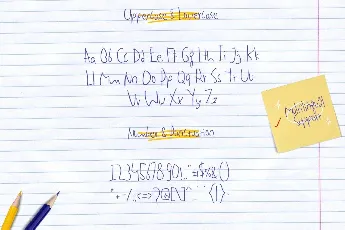 Uppercase & Lowercase
Aa Bb Cc Dd Ee Ff Gg Hh Ii Jj Kk
Ll Mm Nn Oo Pp Qq Rr Ss Tt Uu
Vv Ww Xx Yy Zz
Multilingual
Support
Number & Punctuation